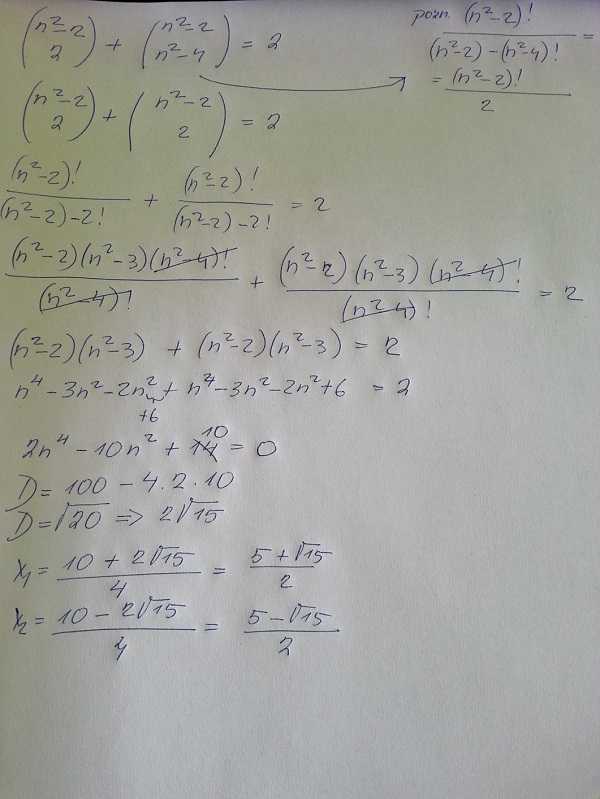 (n²-2 2) + (n²-2 n²-4) = 2
pozn. (n²-2)! / (n²-2)-(n²-4)! =
= (n²-2)! / 2
(n²-2 2) + (n²-2 2) = 2
(n²-2)! / (n²-2)-2! + (n²-2)! / (n²-2)-2! = 2
(n²-2)(n²-3)(n²-4)! / (n²-4)! + (n²-2)(n²-3)(n²-4)! / (n²-4)! = 2
(n²-2)(n²-3) + (n²-2)(n²-3) = 2
n⁴-3n²-2n²+ n⁴-3n²-2n²+6 = 2
+6
2n⁴-10n²+ 14 10 = 0
D= 100 - 4.2.10
D=√20 => 2√15
x₁= 10+2√15 / 4 = 5+√15 / 2
x₂= 10-2√15 / 4 = 5-√15 / 2